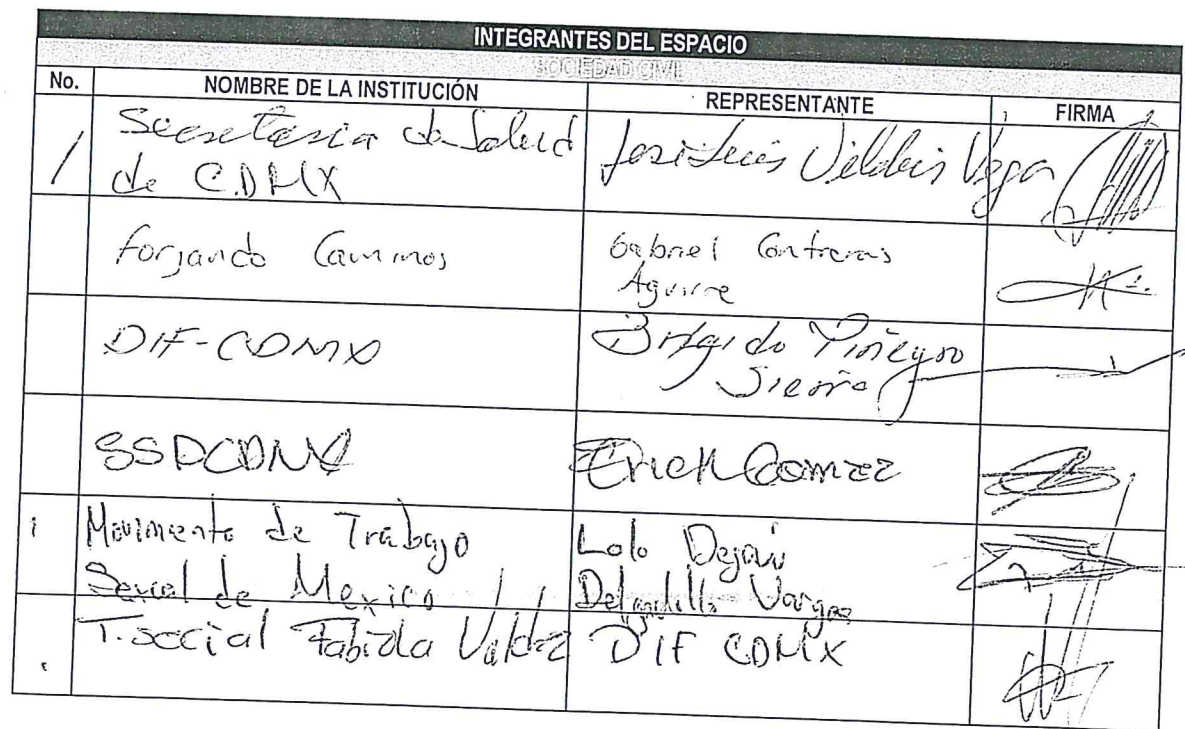 INTEGRANTES DEL ESPACIO
SOCIEDAD CIVIL
No. NOMBRE DE LA INSTITUCIÓN REPRESENTANTE FIRMA
1 Secretaria de Salud José Luis Valdéis Vega
de CDMX
Forjando Caminos Gabriel Contreras
Aguirre
DIF-CDMX Brigido Piñeyro
Sierra
SSPCDMX Erick Gomez
Movimiento de Trabajo Lolo Dejavi
Sexual de Mexico Delgadillo Vargas
T. social Fabiola Valdez DIF CDMX